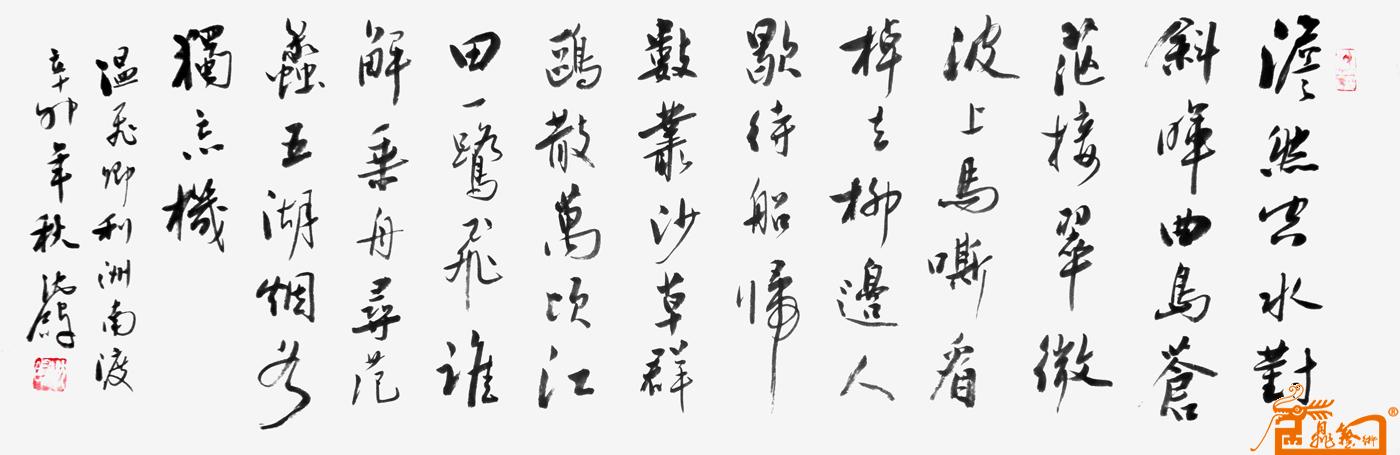 澹然空水對
斜暉曲島蒼
茫接翠微
波上馬嘶看
棹去柳邊人
歇待船歸
數叢沙草群
鷗散萬頃江
田一鷺飛誰
解乘舟尋范
蠡五湖烟水
獨忘機
温飛卿利洲南渡
辛卯年秋